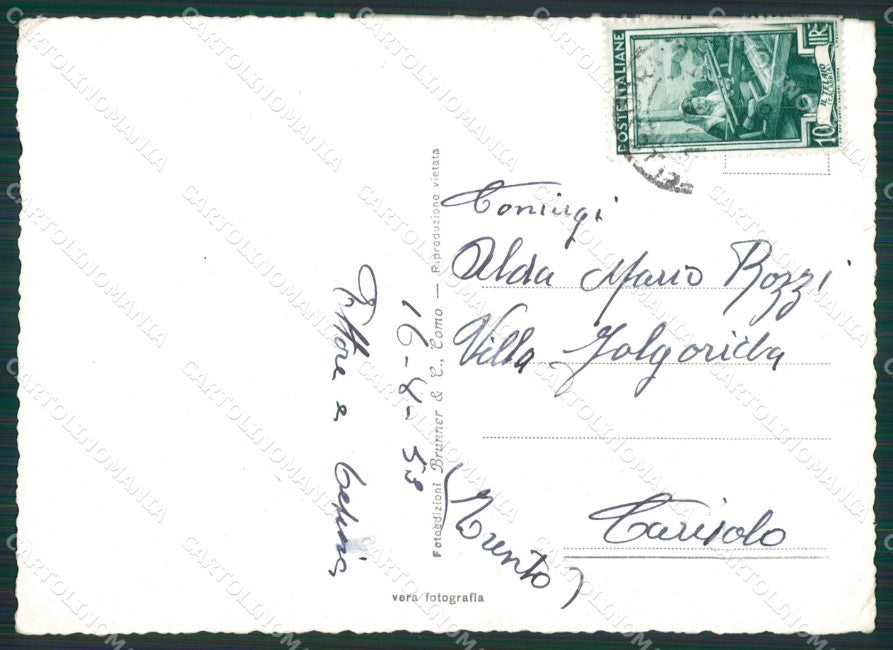 POSTE ITALIANE
LIRE
10
IL TELAIO
Coniugi
Alda Mario Bozzi
Villa Folgorida
Carisolo
(Trento)
16-8-53
Ettore e
Fotoedizioni Brunner & C., Como — Riproduzione vietata
vera fotografia
CARTOLINOMANIA